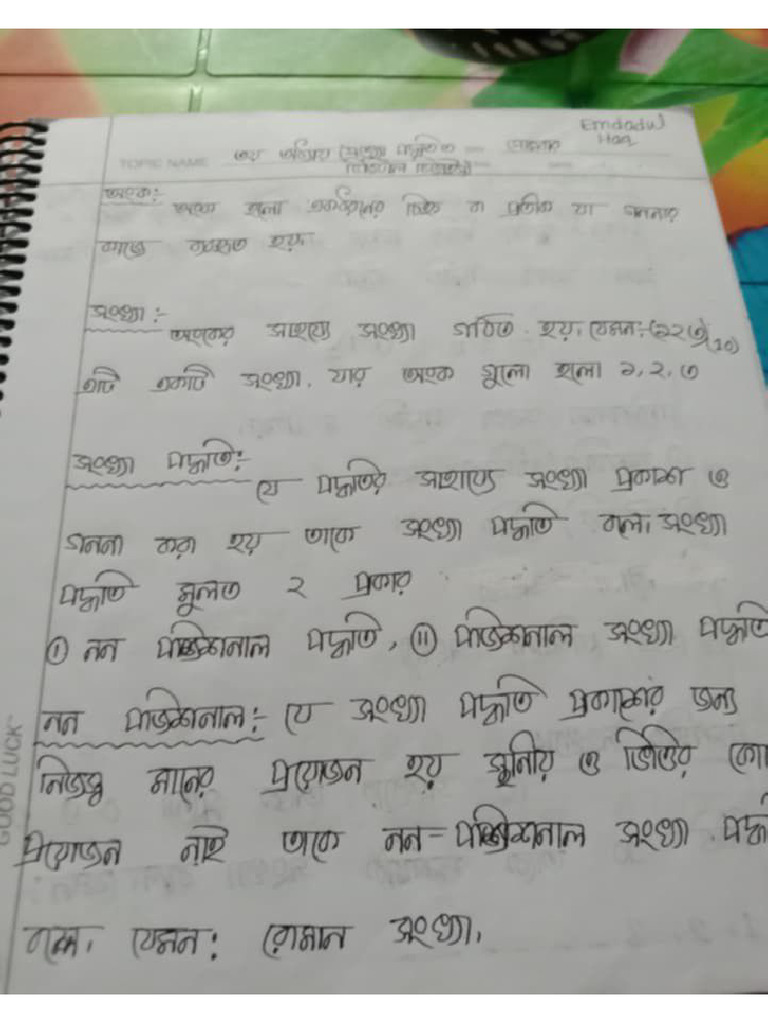 Emdadul
Haq
TOPIC NAME ৩য় অধ্যায় সংখ্যা পদ্ধতি
ডিজিটাল ডিভাইস
অংক:
অংক হলো একধরনের চিহ্ন বা প্রতীক যা গননার
কাজে ব্যবহৃত হয়।
সংখ্যা :-
অংকের সাহায্যে সংখ্যা গঠিত হয়। যেমন: (১২৩)(10)
এটি একটি সংখ্যা, যার অংক গুলো হলো ১, ২, ৩
সংখ্যা পদ্ধতি:-
যে পদ্ধতির সাহায্যে সংখ্যা প্রকাশ ও
গননা করা হয় তাকে সংখ্যা পদ্ধতি বলে। সংখ্যা
পদ্ধতি মুলত ২ প্রকার
(i) নন পজিশনাল পদ্ধতি, (ii) পজিশনাল সংখ্যা পদ্ধতি
নন পজিশনাল:- যে সংখ্যা পদ্ধতি প্রকাশের জন্য
নিজস্ব মানের প্রয়োজন হয় স্থনিয় ও ভিত্তির কো
প্রয়োজন নাই তাকে নন-পজিশনাল সংখ্যা পদ্ধ
বলে। যেমন: রোমান সংখ্যা।
GOOD LUCK